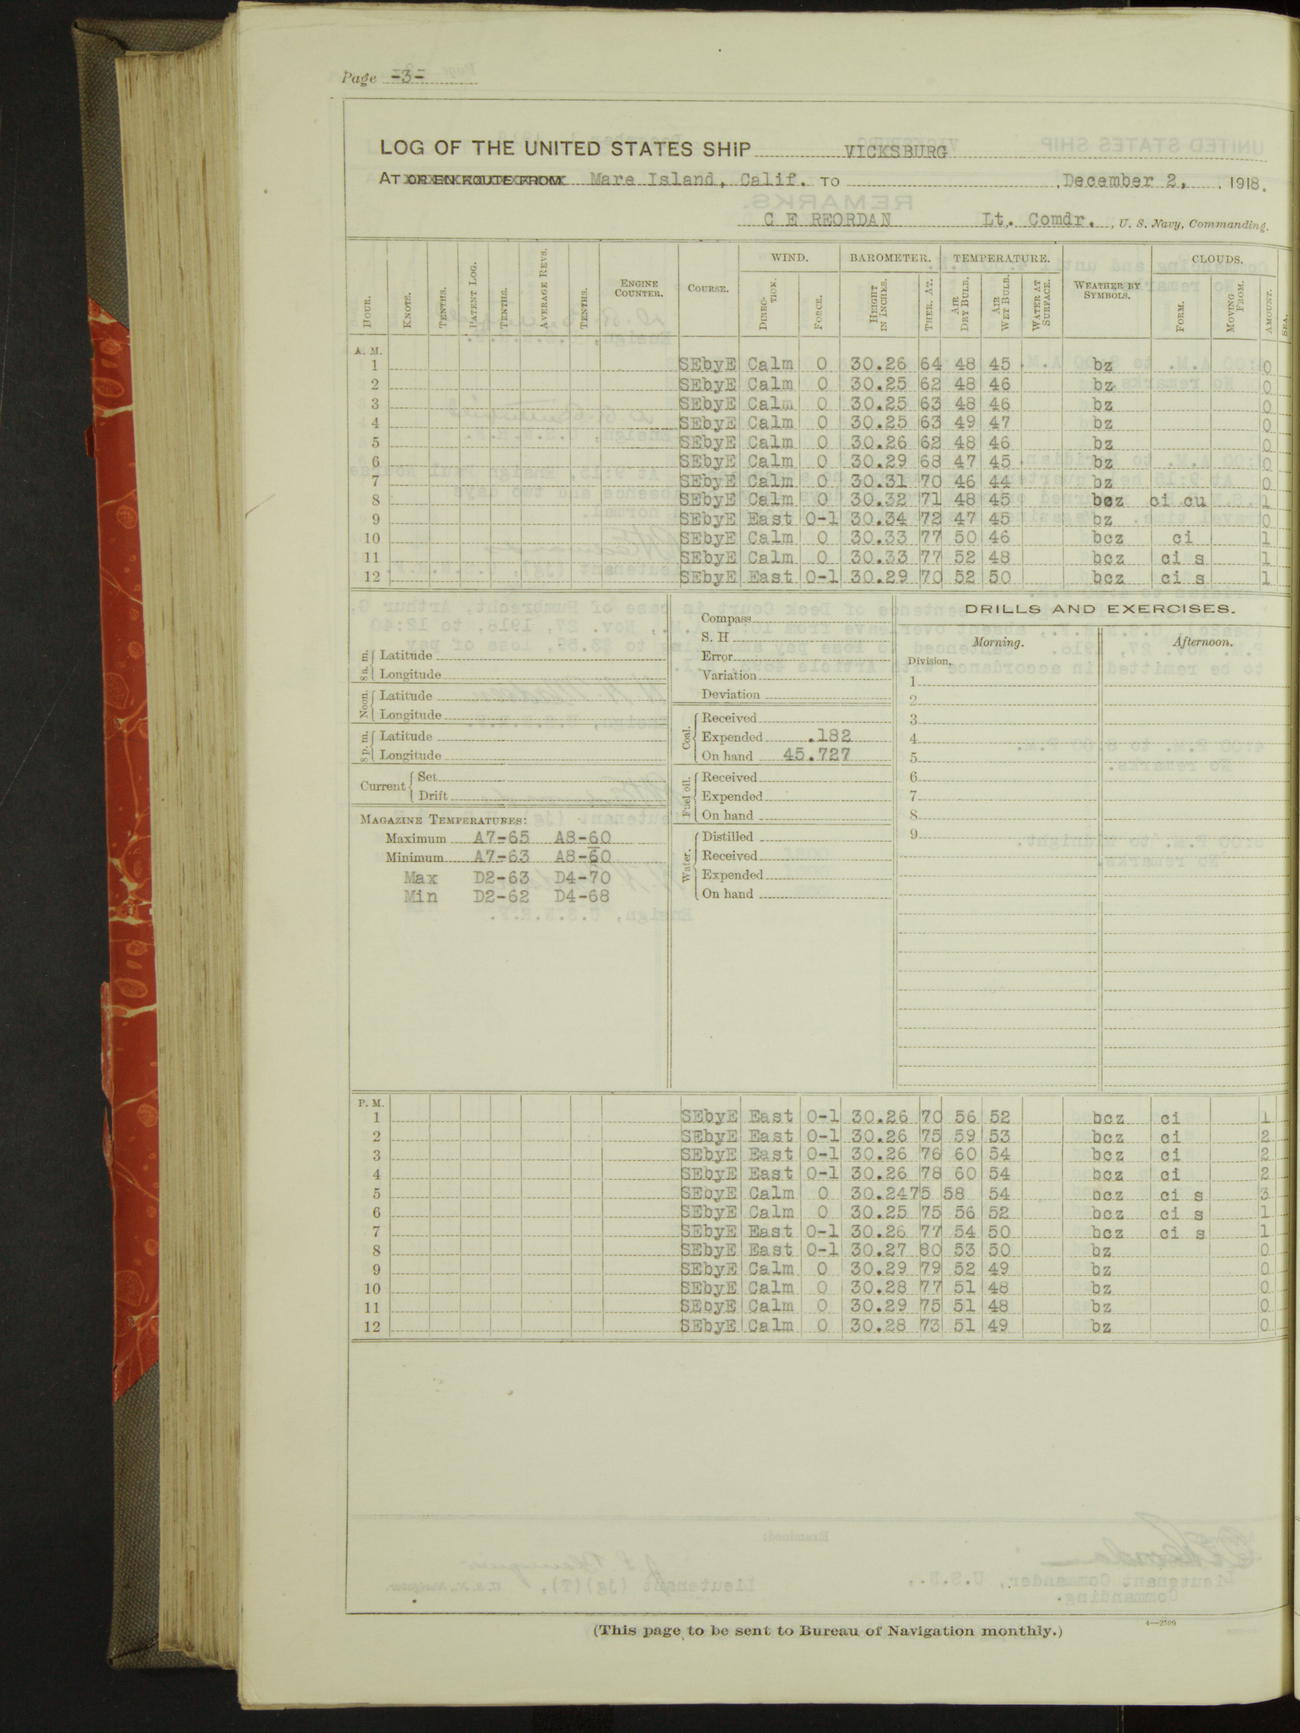 Page -3-
LOG OF THE UNITED STATES SHIP VICKSBURG
AT OR EN ROUTE FROM Mare Island, Calif. TO , December 2, , 1918.
C E REORDAN Lt. Comdr. , U. S. Navy, Commanding.
HOUR. KNOTS. TENTHS. PATENT LOG. TENTHS. AVERAGE REVS. TENTHS. ENGINE COUNTER. COURSE. WIND. DIRECTION. FORCE. BAROMETER. HEIGHT IN INCHES. THER. AT. TEMPERATURE. AIR DRY BULB. AIR WET BULB. WATER AT SURFACE. WEATHER BY SYMBOLS. CLOUDS. FORM. MOVING FROM. AMOUNT. SEA.
A. M.
1 SEbyE Calm 0 30.26 64 48 45 bz 0
2 SEbyE Calm 0 30.25 62 48 46 bz 0
3 SEbyE Calm 0 30.25 63 48 46 bz 0
4 SEbyE Calm 0 30.25 63 49 47 bz 0
5 SEbyE Calm 0 30.26 62 48 46 bz 0
6 SEbyE Calm 0 30.29 68 47 45 bz 0
7 SEbyE Calm 0 30.31 70 46 44 bz 0
8 SEbyE Calm 0 30.32 71 48 45 bcz ci cu 1
9 SEbyE East 0-1 30.34 72 47 45 bz 0
10 SEbyE Calm 0 30.33 77 50 46 bcz ci 1
11 SEbyE Calm 0 30.33 77 52 48 bcz ci s 1
12 SEbyE East 0-1 30.29 70 52 50 bcz ci s 1
8 a. m. Latitude
Longitude
Noon. Latitude
Longitude
8 p. m. Latitude
Longitude
Current Set
Drift
MAGAZINE TEMPERATURES:
Maximum A7-65 A8-60
Minimum A7-63 A8-60
Max D2-63 D4-70
Min D2-62 D4-68
Compass
S. H
Error
Variation
Deviation
Coal. Received
Expended .182
On hand 45.727
Fuel oil. Received
Expended
On hand
Water. Distilled
Received
Expended
On hand
DRILLS AND EXERCISES.
Morning. Afternoon.
Division.
1
2
3
4
5
6
7
8
9
P. M.
1 SEbyE East 0-1 30.26 70 56 52 bcz ci 1
2 SEbyE East 0-1 30.26 75 59 53 bcz ci 2
3 SEbyE East 0-1 30.26 76 60 54 bcz ci 2
4 SEbyE East 0-1 30.26 78 60 54 bcz ci 2
5 SEbyE Calm 0 30.24 75 58 54 bcz ci s 3
6 SEbyE Calm 0 30.25 75 56 52 bcz ci s 1
7 SEbyE East 0-1 30.26 77 54 50 bcz ci s 1
8 SEbyE East 0-1 30.27 80 53 50 bz 0
9 SEbyE Calm 0 30.29 79 52 49 bz 0
10 SEbyE Calm 0 30.28 77 51 48 bz 0
11 SEbyE Calm 0 30.29 75 51 48 bz 0
12 SEbyE Calm 0 30.28 73 51 49 bz 0
(This page to be sent to Bureau of Navigation monthly.)